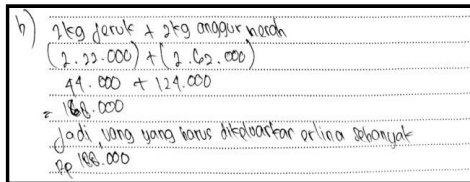 b) 2kg Jeruk + 2kg anggur merah
(2.22.000) + (2.62.000)
44.000 + 124.000
= 168.000
Jadi uang yang harus dikeluarkan erlina sebanyak
Rp 168.000